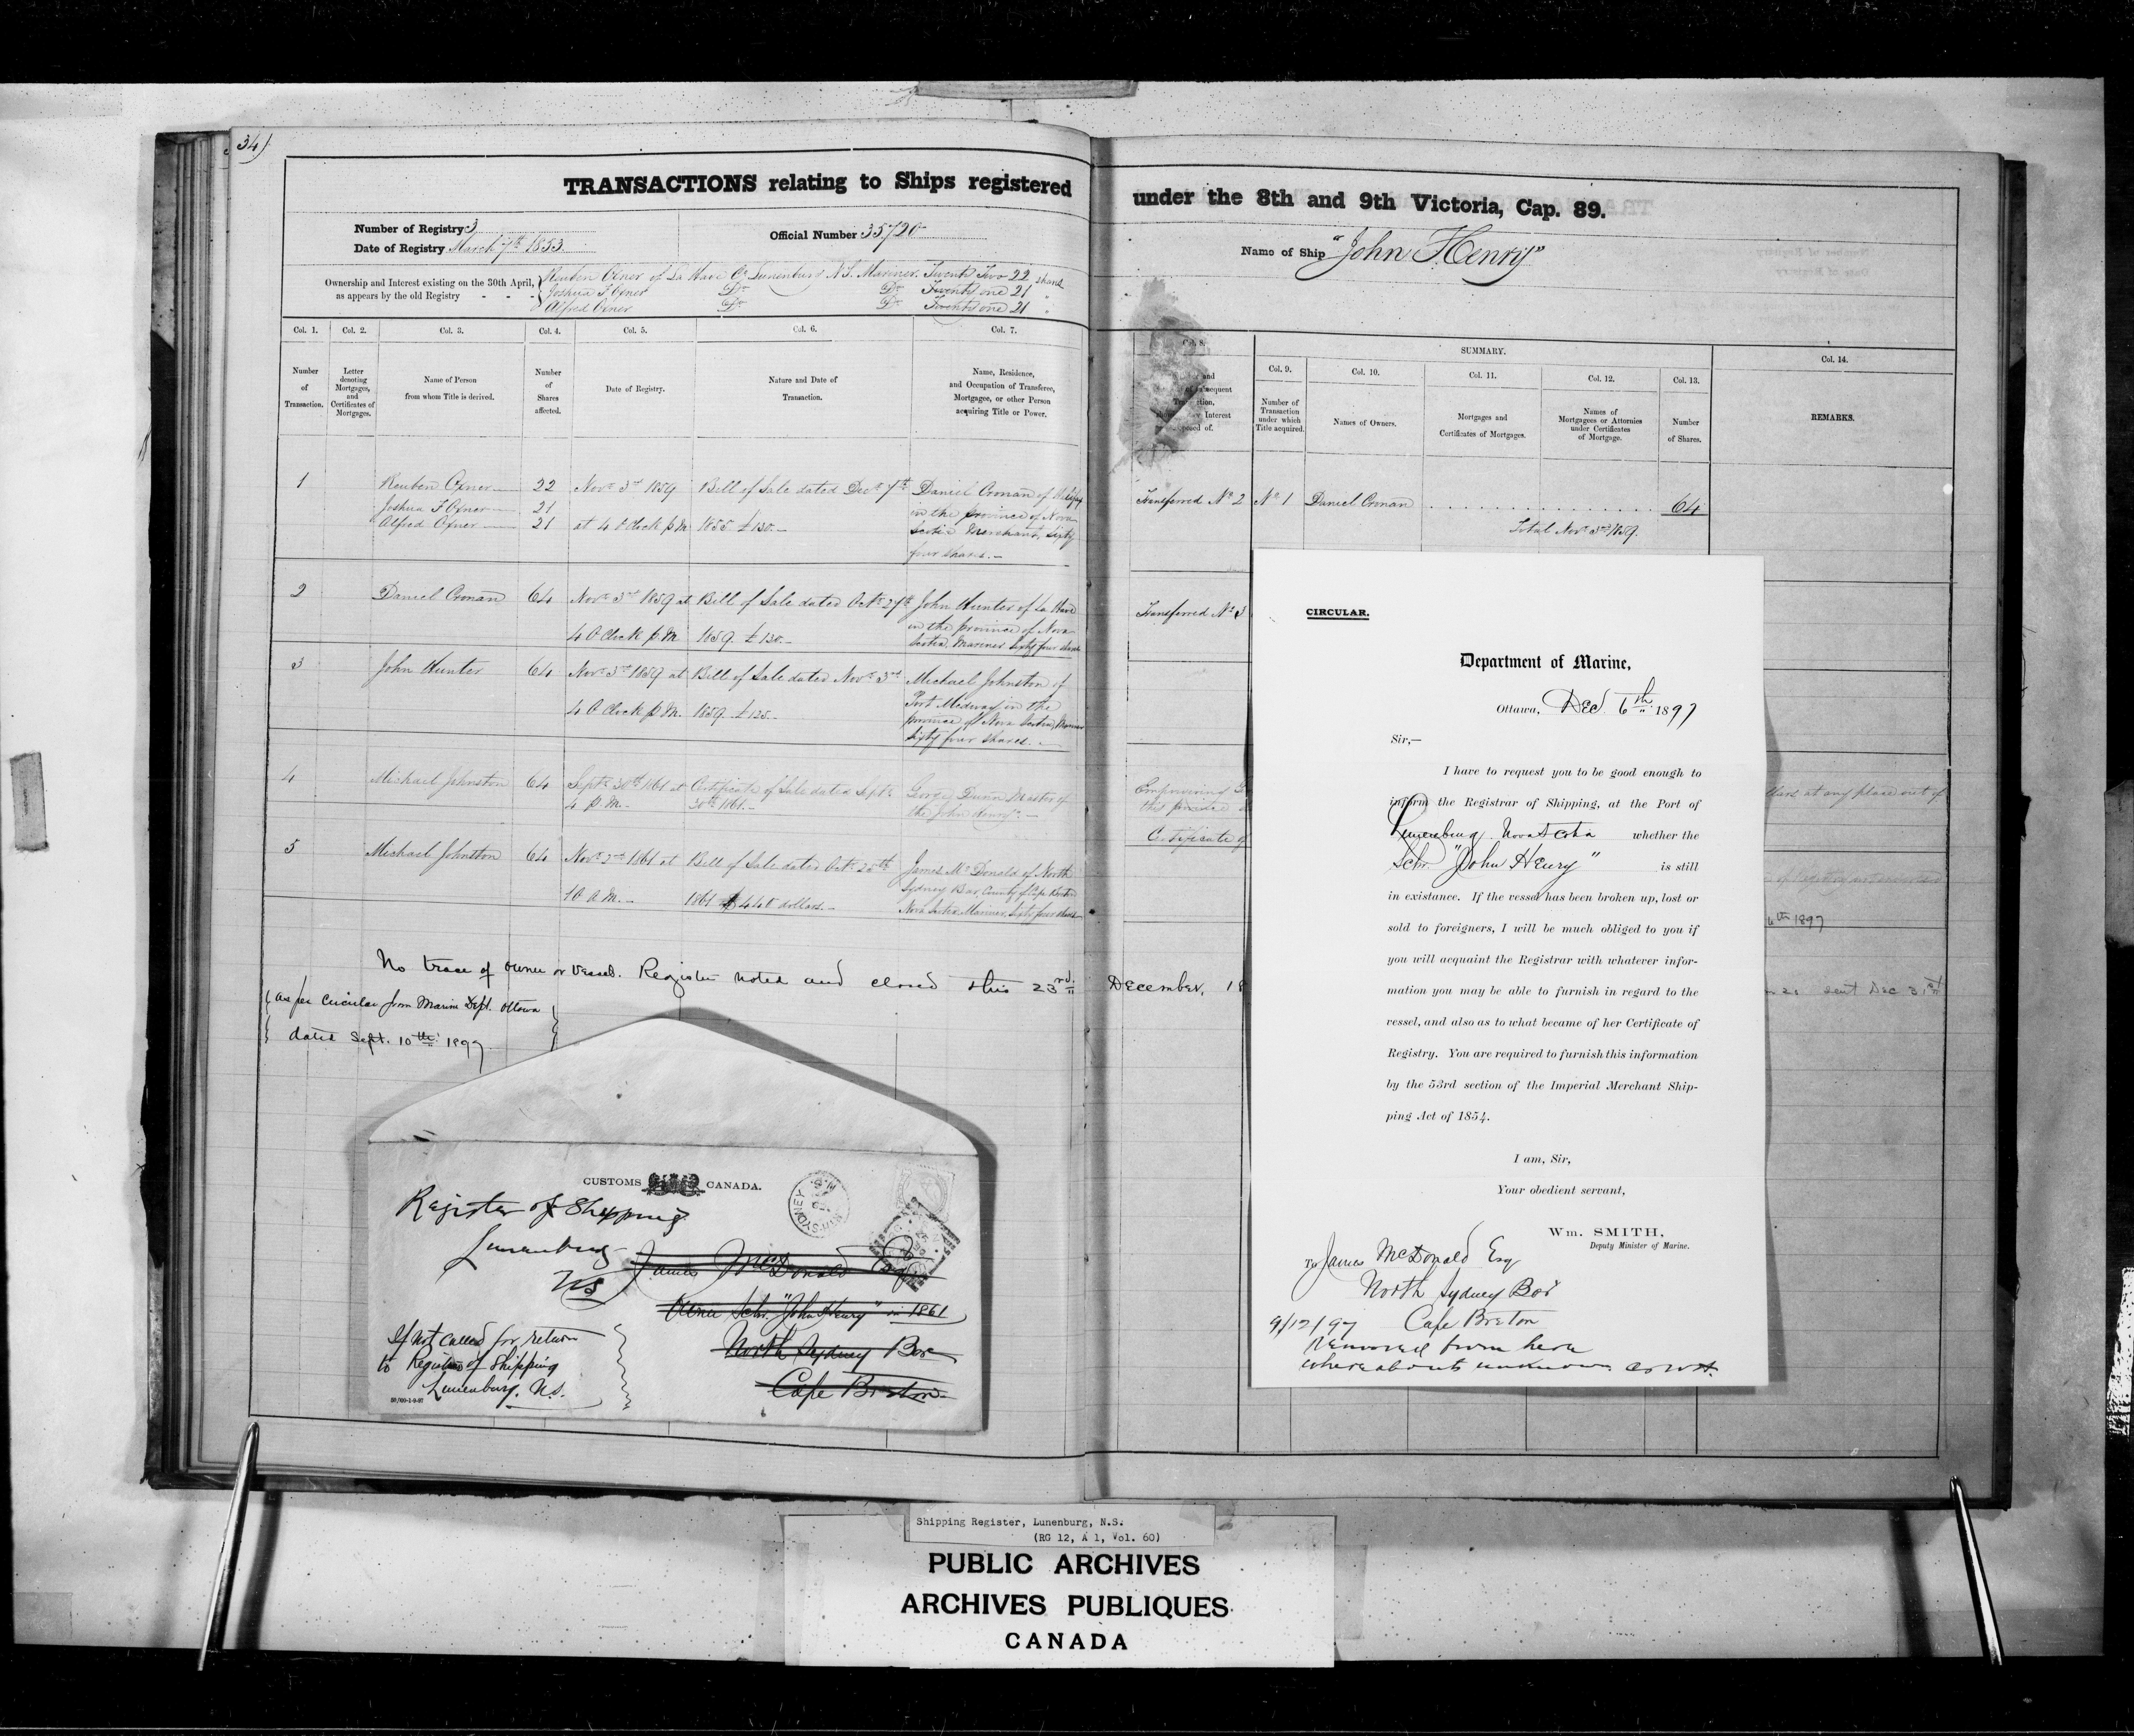 34)
TRANSACTIONS relating to Ships registered under the 8th and 9th Victoria, Cap. 89.
Number of Registry 3
Official Number 35720
Date of Registry March 7th 1853.
Name of Ship "John Henry"
Ownership and Interest existing on the 30th April,
as appears by the old Registry - - -
Reuben Oxner of La Have Co. Lunenburg N.S. Mariner. Twenty Two 22 shares
Joshua F Oxner Do Do Twenty one 21 "
Alfred Oxner Do Do Twenty one 21 "
Col. 1.
Number
of
Transaction.
Col. 2.
Letter
denoting
Mortgages,
and
Certificates of
Mortgages.
Col. 3.
Name of Person
from whom Title is derived.
Col. 4.
Number
of
Shares
affected.
Col. 5.
Date of Registry.
Col. 6.
Nature and Date of
Transaction.
Col. 7.
Name, Residence,
and Occupation of Transferee,
Mortgagee, or other Person
acquiring Title or Power.
Col. 8.
and
subsequent
Interest
of.
SUMMARY.
Col. 9.
Number of
Transaction
under which
Title acquired.
Col. 10.
Names of Owners.
Col. 11.
Mortgages and
Certificates of Mortgages.
Col. 12.
Names of
Mortgagees or Attornies
under Certificates
of Mortgage.
Col. 13.
Number
of Shares.
Col. 14.
REMARKS.
1
Reuben Oxner
Joshua F Oxner
Alfred Oxner
22
21
21
Novr 3rd 1859
at 4 O Clock p.M.
Bill of Sale dated Decr 7th
1855 £130.-
Daniel Cronan of Halifax
in the province of Nova
Scotia Merchant, Sixty
four shares.-
Transferred No 2
No 1
Daniel Cronan
64
Total Novr 3rd 1859.
2
Daniel Cronan
64
Novr 3rd 1859 at
4 O Clock p.M.
Bill of Sale dated Octr 27th
1859. £130.-
John Hunter of La Have
in the province of Nova
Scotia, Mariner Sixty four shares
Transferred No 3
3
John Hunter
64
Novr 3rd 1859 at
4 O Clock p.M.
Bill of Sale dated Novr 3rd
1859. £125.-
Michael Johnston of
Port Medway in the
province of Nova Scotia, Mariner
Sixty four shares.-
4
Michael Johnston
64
Septr 30th 1861 at
4 p.M.-
Certificate of Sale dated Septr
30th 1861.-
George Dunn Master of
the "John Henry".-
Empowering
this province
Certificate of
at any place out of
5
Michael Johnston
64
Novr 2nd 1861 at
10 A.M.-
Bill of Sale dated Octr 25th
1861 $440 dollars.-
James McDonald of North
Sydney Bar, County of Cape Breton
Nova Scotia Mariner, Sixty four shares
6th 1897
No trace of owner or Vessel. Register noted and closed this 23rd December, 18
sent Dec 31st
as per Circular from Marine Dept. Ottawa
dated Sept. 10th 1897
CUSTOMS CANADA.
N. SYDNEY
Register of Shipping
Lunenburg
NS
James McDonald Esq
Owner Schr. "John Henry" in 1861
North Sydney Bar
Cape Breton
If not called for return
to Register of Shipping
Lunenburg. N.S.
CIRCULAR.
Department of Marine,
Ottawa, Dec. 6th 1897
Sir,—
I have to request you to be good enough to
inform the Registrar of Shipping, at the Port of
Lunenburg Nova Scotia whether the
Schr. "John Henry" is still
in existance. If the vessel has been broken up, lost or
sold to foreigners, I will be much obliged to you if
you will acquaint the Registrar with whatever infor-
mation you may be able to furnish in regard to the
vessel, and also as to what became of her Certificate of
Registry. You are required to furnish this information
by the 53rd section of the Imperial Merchant Ship-
ping Act of 1854.
I am, Sir,
Your obedient servant,
Wm. SMITH,
Deputy Minister of Marine.
To James McDonald Esq
North Sydney Bar
Cape Breton
9/12/97
Removed from here
whereabouts unknown
Shipping Register, Lunenburg, N.S.
(RG 12, A 1, Vol. 60)
PUBLIC ARCHIVES
ARCHIVES PUBLIQUES
CANADA